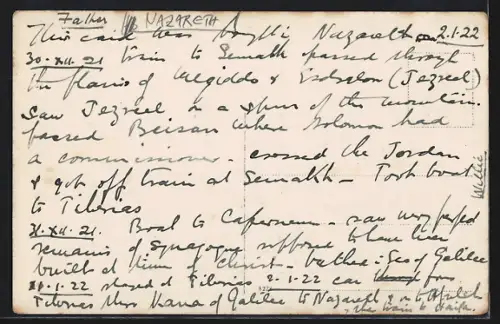 Father NAZARETH
This card was bought in Nazareth on 2.1.22
30.XII.21 train to Semakh passed through
the plains of Megiddo & Esdraelon (Jezreel)
saw Jezreel on a spur of the mountain.
passed Beisan where Solomon had
a commissioner. crossed the Jordan
& got off train at Semakh — Took boat
to Tiberias
31.XII.21. Boat to Capernaum — saw very perfect
remains of Synagogue supposed to have been
built at time of Christ — bathed in Sea of Galilee
1.1.22 stayed at Tiberias 2.1.22 car from
Tiberias thro Kana of Galilee to Nazareth & on to
the train to Haifa.
Willie